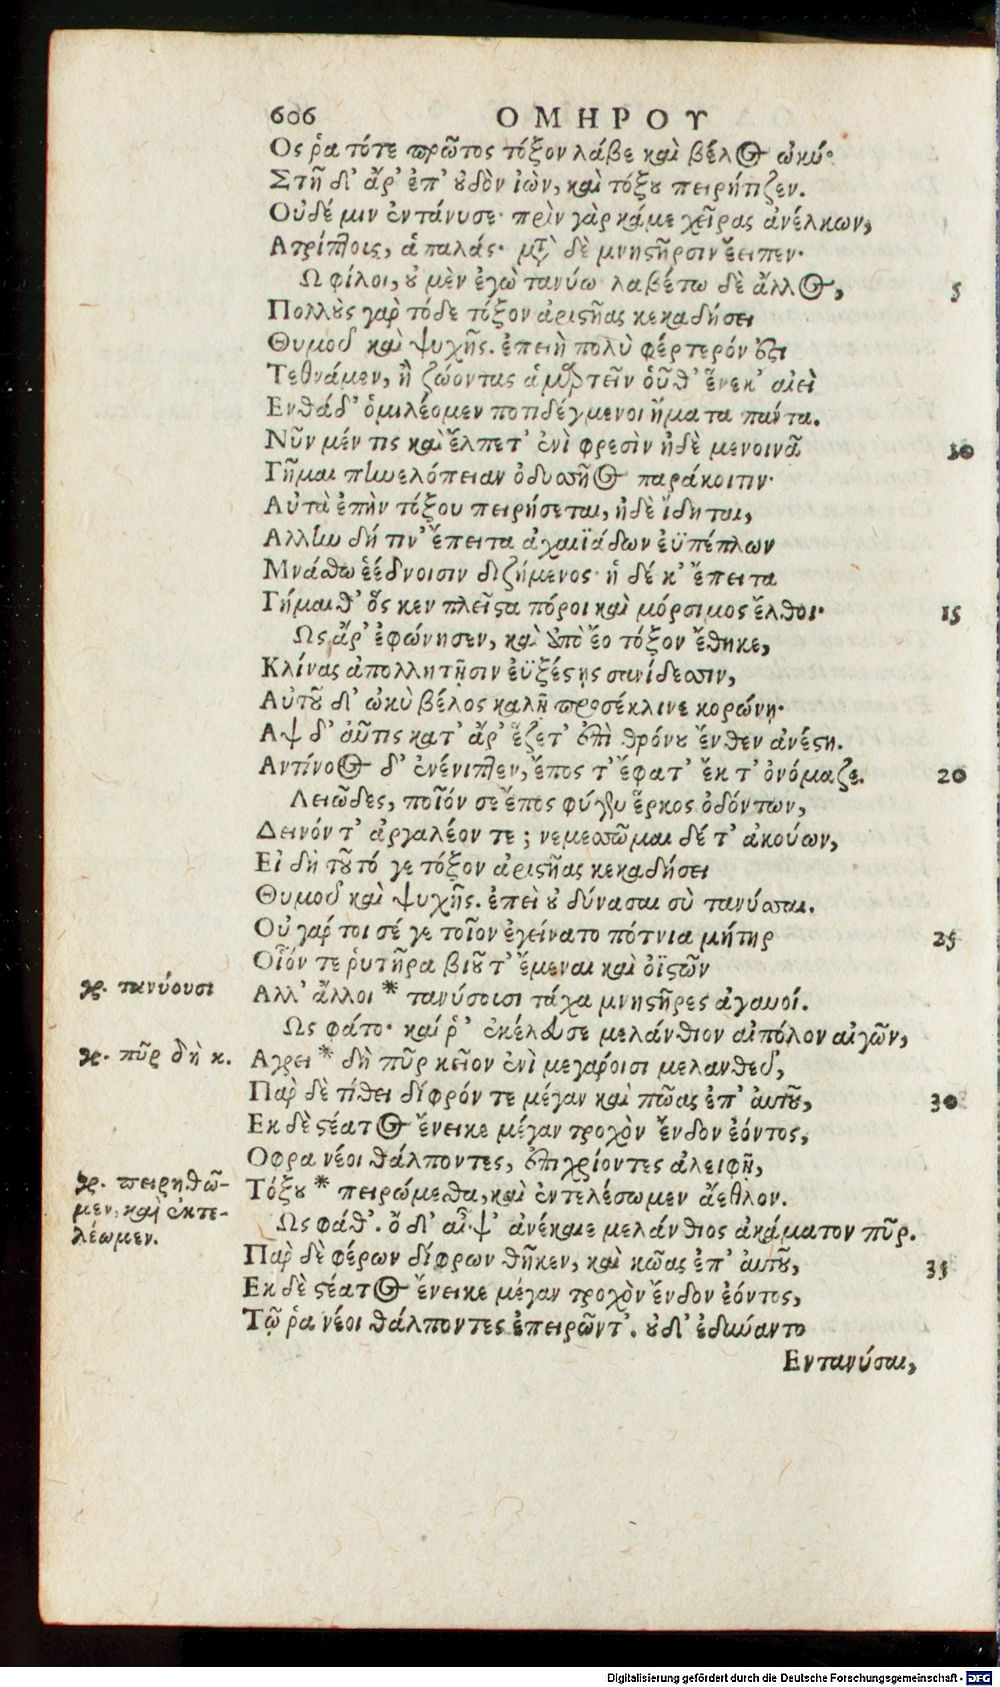 606 ΟΜΗΡΟΥ
Ος ῥα τότε πρῶτος τόξον λάβε καὶ βέλος ὠκύ·
Στῆ δ' ἄρ' ἐπ' ουδὸν ἰὼν, καὶ τόξου πειρήτιζεν.
Οὐδέ μιν ἐντάνυσε· πρὶν γὰρ κάμε χεῖρας ἀνέλκων,
Ατρίπτοις, ἁπαλάς· μετὰ δὲ μνηστῆρσιν ἔειπεν·
Ω φίλοι, ου μὲν ἐγὼ τανύω· λαβέτω δὲ ἄλλος, 5
Πολλοὺς γαρ τόδε τόξον ἀριστῆας κεκαδήσει
Θυμοῦ καὶ ψυχῆς. ἐπειὴ πολὺ φέρτερόν ἐστι
Τεθνάμεν, ἢ ζώοντας ἁμαρτεῖν οὗθ' ἕνεκ' αἰεὶ
Ενθάδ' ὁμιλέομεν ποτιδέγμενοι ἤματα πάντα.
Νῦν μέν τις καὶ ἔλπετ' ἐνὶ φρεσὶν ἠδὲ μενοινᾶ 10
Γῆμαι πηνελόπειαν ὀδυσσῆος παράκοιτιν·
Αὐτὰ ἐπὴν τόξου πειρήσεται, ἠδὲ ἴδηται,
Αλλην δή τιν' ἔπειτα ἀχαιϊάδων ἐϋπέπλων
Μνάσθω ἐέδνοισιν διζήμενος· ἡ δέ κ' ἔπειτα
Γήμαιθ' ὅς κεν πλεῖστα πόροι καὶ μόρσιμος ἔλθοι· 15
Ως ἄρ' ἐφώνησεν, καὶ ἀπὸ ἕο τόξον ἔθηκε,
Κλίνας ἀπολλητῇσιν ἐϋξέστῃς σανίδεσσιν,
Αὐτοῦ δ' ὠκὺ βέλος καλῇ προσέκλινε κορώνῃ·
Αψ δ' αὖτις κατ' ἄρ' ἕζετ' ἐπὶ θρόνου ἔνθεν ἀνέστη.
Αντίνοος δ' ἐνένιπτεν, ἔπος τ' ἔφατ' ἔκ τ' ὀνόμαζε. 20
Λειῶδες, ποῖόν σε ἔπος φύγεν ἕρκος ὀδόντων,
Δεινόν τ' ἀργαλέον τε; νεμεσσῶμαι δέ τ' ἀκούων,
Εἰ δὴ τοῦτό γε τόξον ἀριστῆας κεκαδήσει
Θυμοῦ καὶ ψυχῆς. ἐπεὶ ου δύνασαι σὺ τανύσσαι.
Οὐ γάρ τοι σέ γε τοῖον ἐγείνατο πότνια μήτηρ 25
Οἷόν τε ῥυτῆρα βιοῦ τ' ἔμεναι καὶ ὀϊστῶν
γρ. τανύουσι Αλλ' ἄλλοι * τανύσουσι τάχα μνηστῆρες ἀγαυοί.
Ως φάτο· καί ῥ' ἐκέλευσε μελάνθιον αἰπόλον αἰγῶν,
γρ. πῦρ δὴ κ. Αγρει * δὴ πῦρ κεῖον ἐνὶ μεγάροισι μελανθεῦ,
Παρ δὲ τίθει δίφρόν τε μέγαν καὶ κῶας ἐπ' ἀυτοῦ, 30
Εκ δὲ στέατος ἔνεικε μέγαν τροχὸν ἔνδον ἐόντος,
Οφρα νέοι θάλποντες, ἐπιχρίοντες ἀλειφῇ,
γρ. πειρηθῶ-
μεν, καὶ ἐκτε-
λέωμεν.
Τόξου * πειρώμεθα, καὶ ἐντελέσωμεν ἄεθλον.
Ως φάθ'. ὃ δ' αἶψ' ἀνέκαιε μελάνθιος ἀκάματον πῦρ.
Παρ δὲ φέρων δίφρων θῆκεν, καὶ κῶας ἐπ' ἀυτοῦ, 35
Εκ δὲ στέατος ἔνεικε μέγαν τροχὸν ἔνδον ἐόντος,
Τῷ ῥα νέοι θάλποντες ἐπειρῶντ'. ουδ' ἐδύναντο
Εντανύσαι,
Digitalisierung gefördert durch die Deutsche Forschungsgemeinschaft - DFG